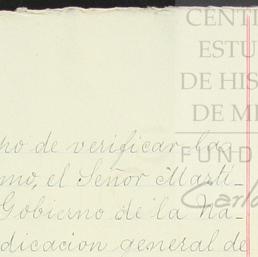 CENT
ESTU
DE HIS
DE M
FUND
Carlo
ho de verificar las
mo, el Señor Marti-
Gobierno de la Na-
dicacion general de